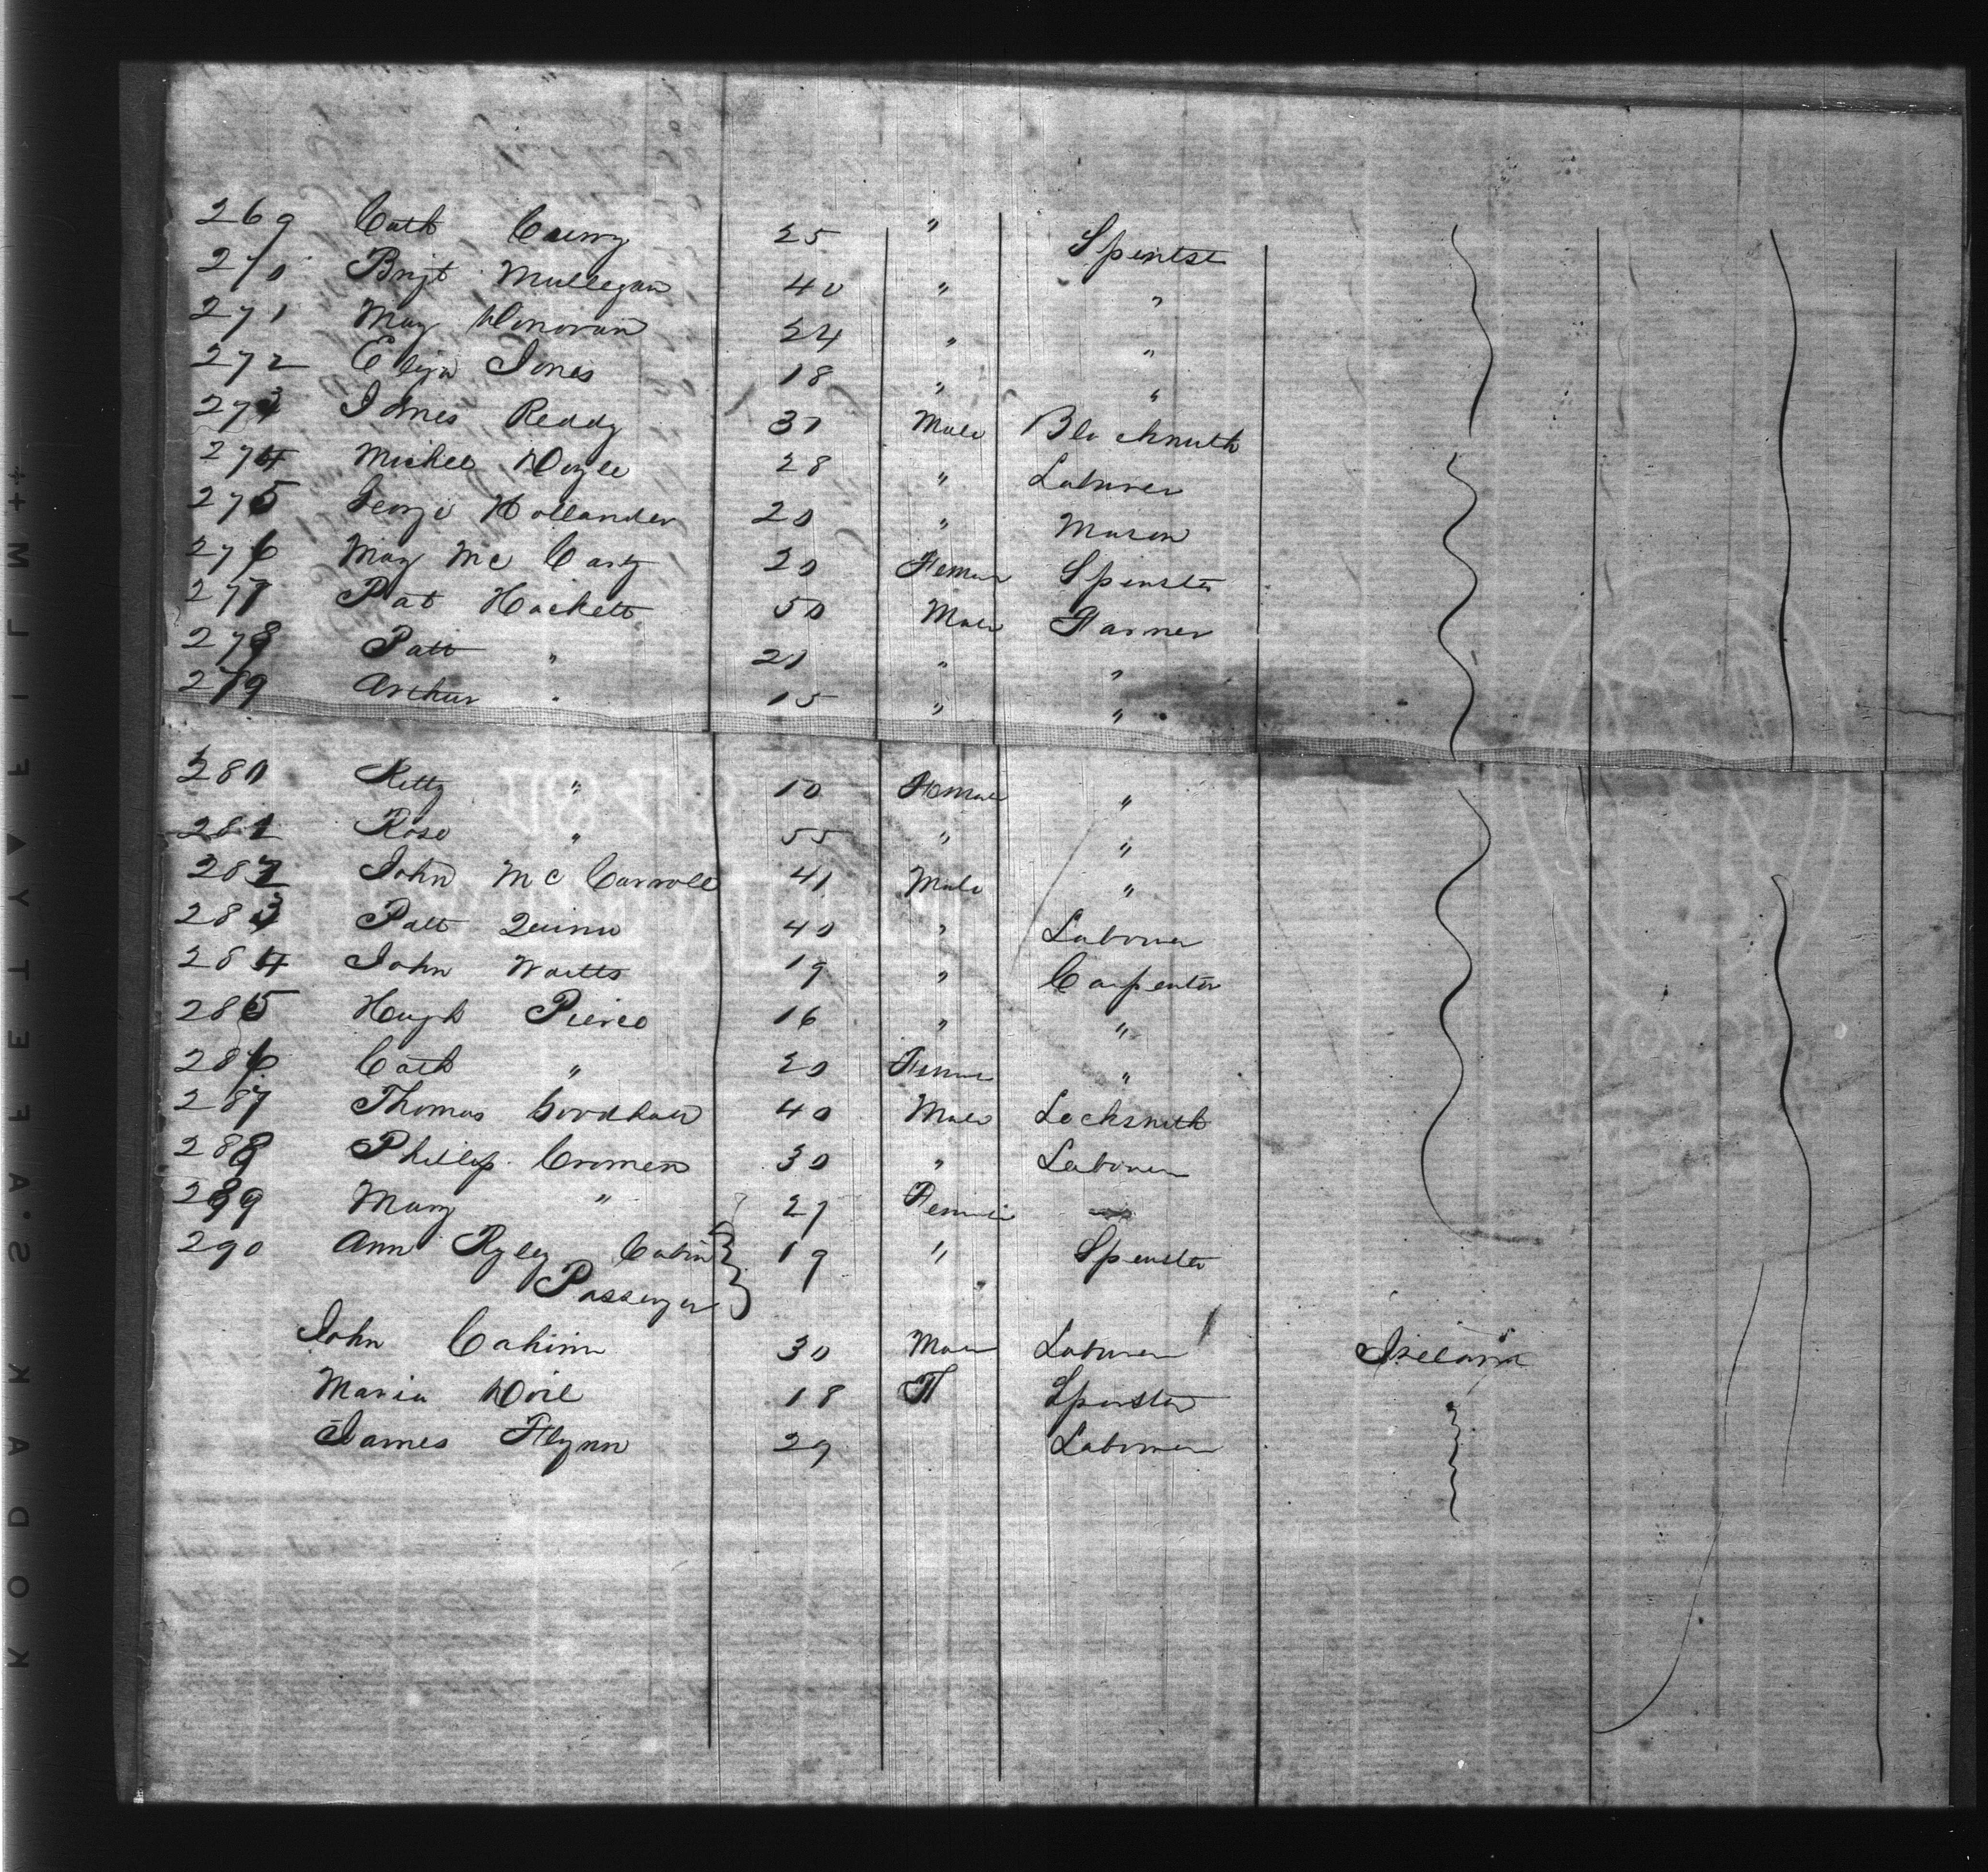 269 Cath Carry 25 " Spintst
270 Brigt Mullegan 40 " "
271 May Donovan 24 " "
272 Eliza Jones 18 " "
273 James Reddy 37 Male Blacksmith
274 Michel Doyle 28 " Labourer
275 George Hollander 20 " Mason
276 May Mc Carty 20 Female Spinster
277 Pat Hackett 50 Male Farmer
278 Patt " 21 " "
279 Arthur " 15 " "
280 Kitty " 10 Female "
281 Rose " 55 " "
282 John Mc Carroll 41 Male "
283 Patt Quinn 40 " Labourer
284 John Waitts 19 " Carpenter
285 Hugh Pierce 16 " "
286 Cath " 20 Female "
287 Thomas 40 Male Locksmith
288 Phillip Cromen 30 " Labourer
289 Mary " 27 Female
290 Ann Ryley Cabin 19 " Spinster
Passenger
John Cahinn 30 Male Labourer Ireland
Maria Doil 18 F Spinster
James Flynn 29 Labourer
KODAK S.AFETY▲FILM++